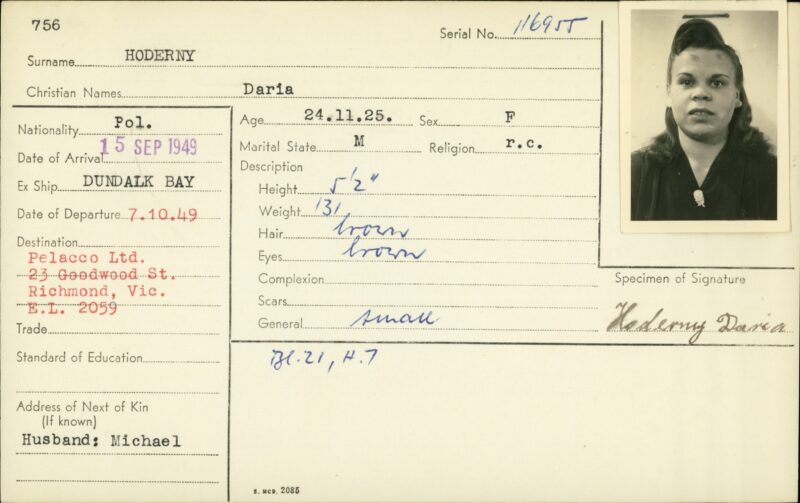 756
Serial No. 116955
Surname HODERNY
Christian Names Daria
Nationality Pol.
Date of Arrival 15 SEP 1949
Ex Ship DUNDALK BAY
Date of Departure 7.10.49
Destination
Pelacco Ltd.
23 Goodwood St.
Richmond, Vic.
E.L. 2059
Trade
Standard of Education
Address of Next of Kin
(If known)
Husband: Michael
Age 24.11.25. Sex F
Marital State M Religion r.c.
Description
Height 5'2"
Weight 131
Hair brown
Eyes brown
Complexion
Scars
General small
Bl. 21, H. 7
S. MCD. 2085
Specimen of Signature
Hoderny Daria